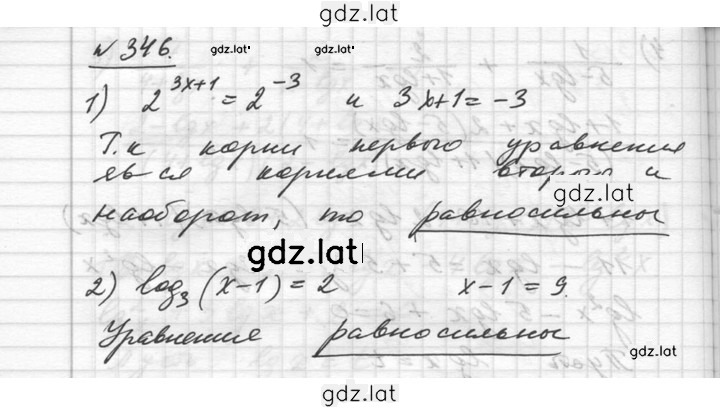 gdz.lat
№ 346. gdz.lat gdz.lat
1) 2^{3x+1} = 2^{-3} и 3x+1 = -3
Т.к корни первого уравнения
явл-ся корнями второго и
gdz.lat
наоборот, то равносильны
gdz.lat
2) log_3 (x-1) = 2 x-1 = 9
Уравнение равносильны
gdz.lat
gdz.lat